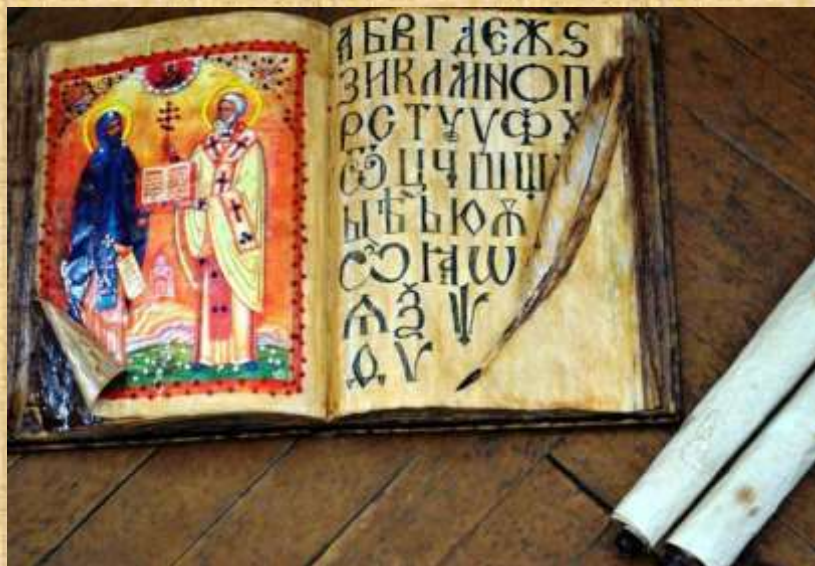 А Б В Г Д Є Ж Ѕ
З И К Л М Н О П
Р С Т У Ѵ Ф Х
Ѽ Ц Ч Ш Щ
Ы Ѣ Ь Ю Ѫ
Ѽ Ꙗ Ѡ
Ѧ Ѯ Ѱ
Ѵ